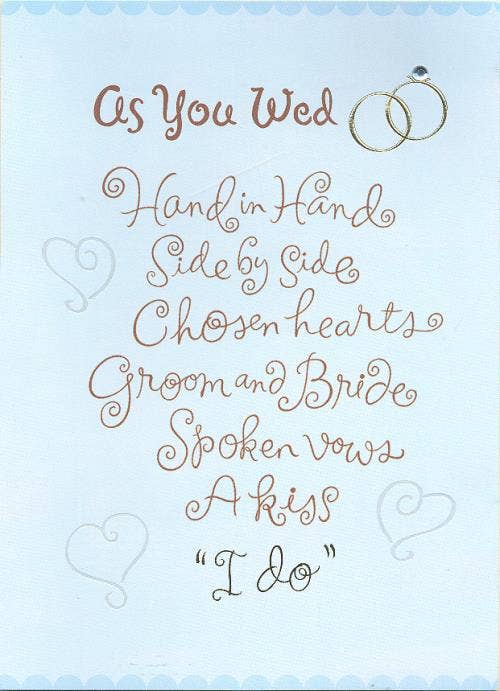 As You Wed
Hand in Hand
Side by Side
Chosen hearts
Groom and Bride
Spoken vows
A kiss
"I do"